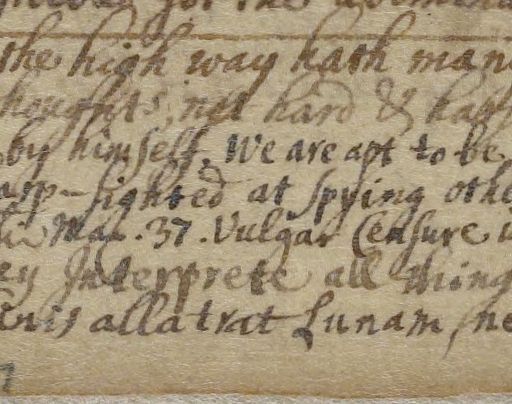 the high way hath man
thoughts, not hard & hasty
by himself. We are apt to be
arp-sighted at spying othe
Max. 37. Vulgar Censure u
ey Interprete all thing
Canis allatrat Lunam, ne